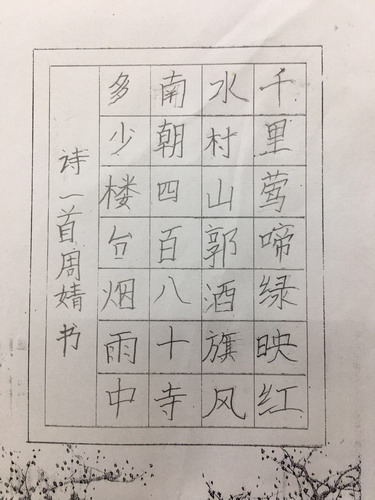 千里莺啼绿映红
水村山郭酒旗风
南朝四百八十寺
多少楼台烟雨中
诗一首周婧书